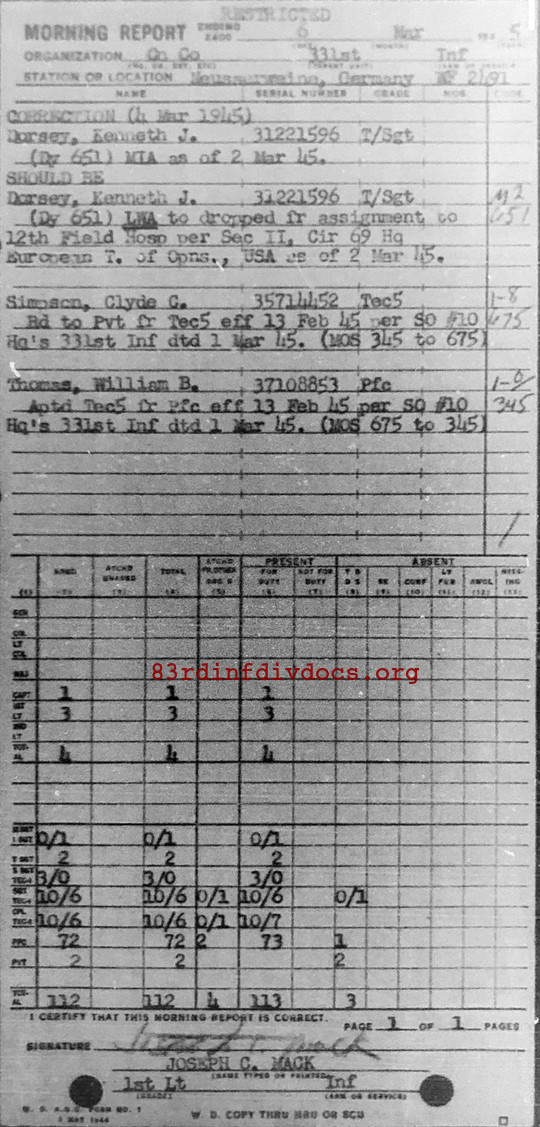 RESTRICTED
MORNING REPORT ENDING 2400 6 Mar 194 5
ORGANIZATION Cn Co 331st Inf
STATION OR LOCATION Germany
NAME SERIAL NUMBER GRADE MOS CODE
CORRECTION (4 Mar 1945)
Dorsey, Kenneth J. 31221596 T/Sgt
(Dy 651) MIA as of 2 Mar 45.
SHOULD BE
Dorsey, Kenneth J. 31221596 T/Sgt M2
(Dy 651) LWA to dropped fr assignment to 651
12th Field Hosp per Sec II, Cir 69 Hq
European T. of Opns., USA as of 2 Mar 45.
Simpson, Clyde C. 35714452 Tec5 1-8
Rd to Pvt fr Tec5 eff 13 Feb 45 per SO #10 675
Hq's 331st Inf dtd 1 Mar 45. (MOS 345 to 675)
Thomas, William B. 37108853 Pfc
Aptd Tec5 fr Pfc eff 13 Feb 45 per SO #10 345
Hq's 331st Inf dtd 1 Mar 45. (MOS 675 to 345)
PRESENT ABSENT
ASGD ATCHD UNASGD TOTAL FOR DUTY NOT FOR DUTY T D D S SK CONF LV FUR AWOL MISS-ING
GEN
COL
LT COL
MAJ
83rdinfdivdocs.org
CAPT 1 1 1
1ST LT 3 3 3
2ND LT
TOT-AL 4 4 4
1 SGT 0/1 0/1 0/1
T SGT 2 2 2
S SGT 3/0 3/0 3/0
SGT 10/6 10/6 0/1 10/6 0/1
CPL 10/6 10/6 0/1 10/7
PFC 72 72 2 73 1
PVT 2 2 2
TOT-AL 112 112 4 113 3
I CERTIFY THAT THIS MORNING REPORT IS CORRECT.
PAGE 1 OF 1 PAGES
SIGNATURE
JOSEPH C. MACK
(NAME TYPED OR PRINTED)
1st Lt Inf
(GRADE) (ARM OR SERVICE)
W. D. A.G.O. FORM NO. 1
W. D. COPY THRU MRU OR SCU